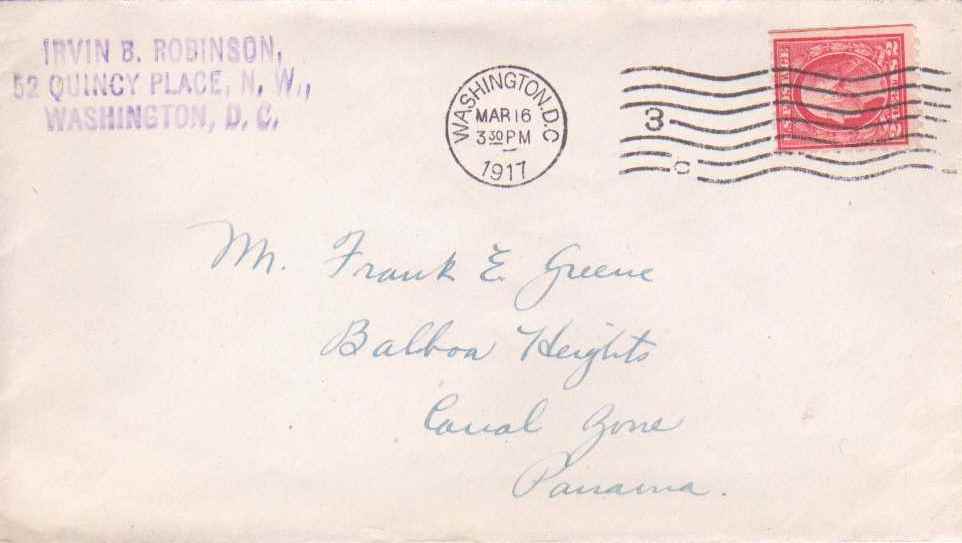 IRVIN B. ROBINSON,
52 QUINCY PLACE, N. W.,
WASHINGTON, D. C.
WASHINGTON, D.C.
MAR 16
3 30 PM
1917
3
C
Mr. Frank E. Greene
Balboa Heights
Canal Zone
Panama.